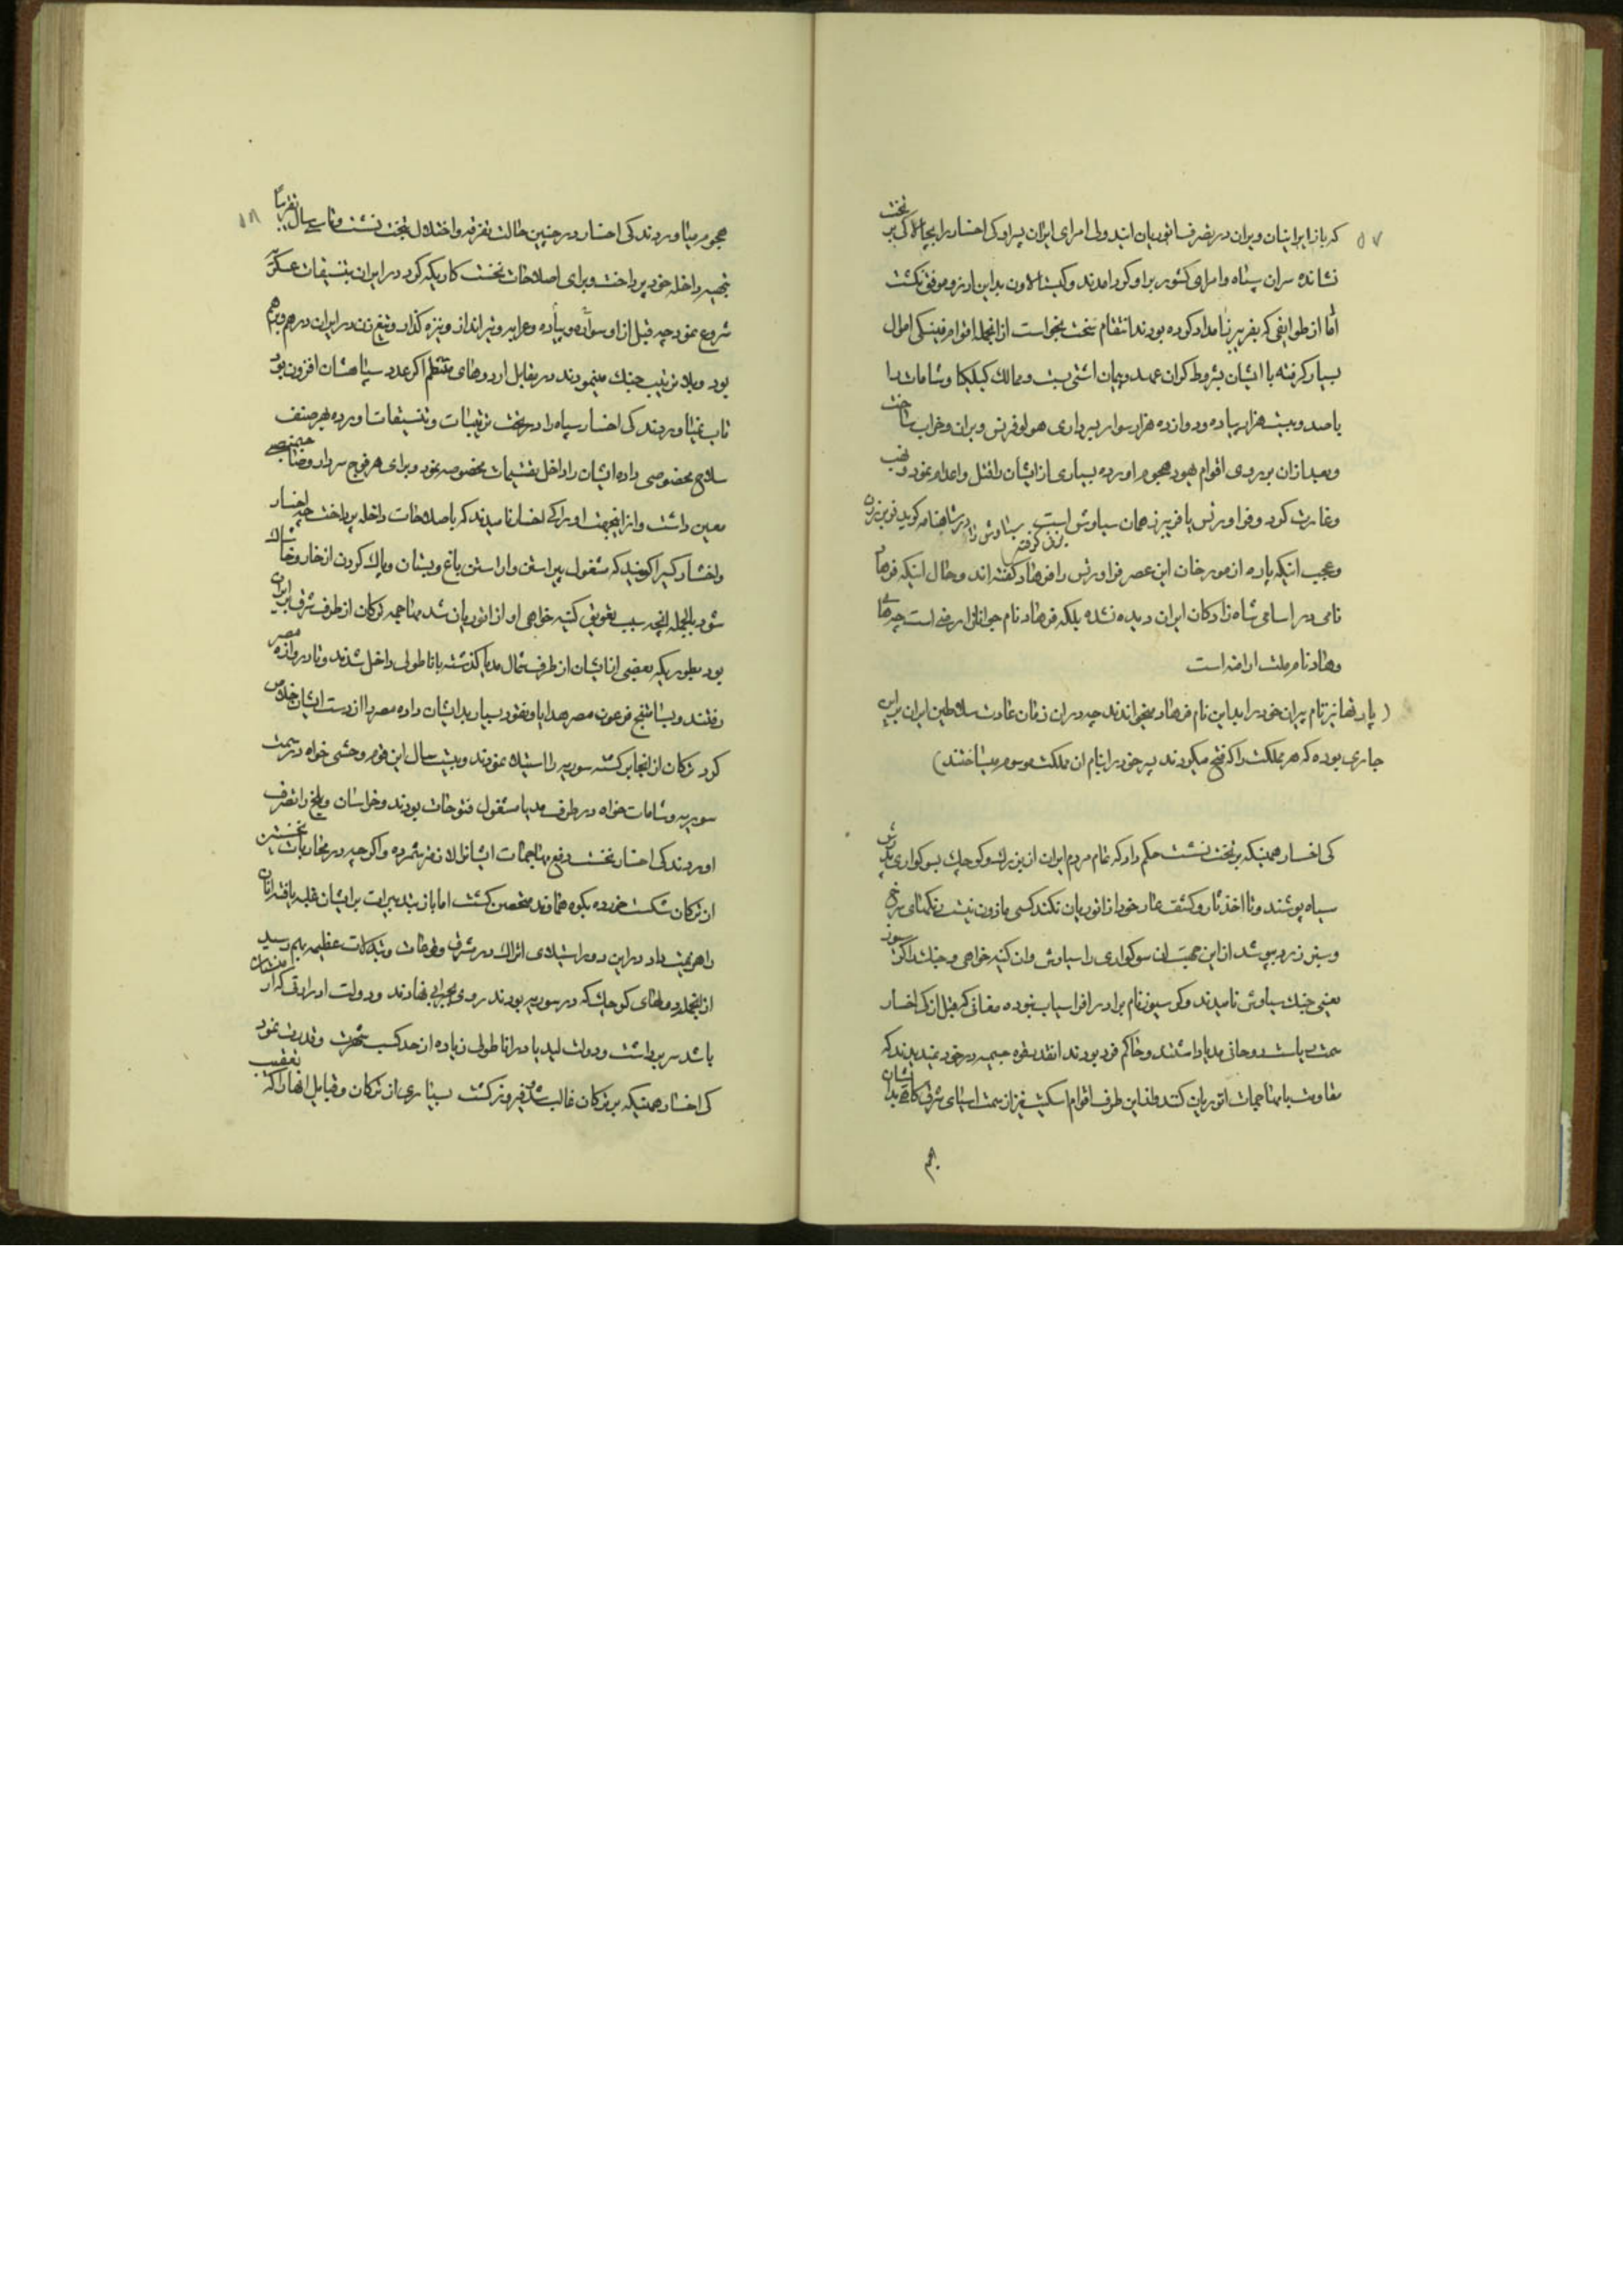 ۵۷
که باز ایرانیان ویران در تصرف اثوریان ایند ولی امرای ایران پسر او کی اخسار را بجای کی بر تخت
نشانده سران سپاه و امرای کشور بر او گرد امدند و کیشالادون بداین ارزو موفق نگشت
اما از طوایفی که بفریبرز امداد کرده بودند انتقام سخت بخواست از انجمله اقوام فینیکی اموال
بسیار گرفته با ایشان بشروط گران عهد و پیمان اشتی ببست و ممالک کیلیکیا و شامات را
با صد و بیست هزار پیاده و دوازده هزار سوار بسرداری هولوفرنس ویران و خراب ساخت
و بعد ازان بر روی اقوام یهود هجوم اورده بسیاری از ایشان را قتل و اعدام نمود و نهب
و غارت کرد و فراورتس یا فریبرز همان سیاوش است در شاهنامه گوید فریبرز زن سیاوش را بزنی گرفته
و عجب اینکه پاره از مورخان این عصر فراورتس را فرهاد گفته اند و حال اینکه فرهاد
نامی در اسامی شاه زادگان ایران دیده نشده بلکه فرهاد نام جوانان ارمنی است چه
وهاد نام ملت ارامنه است
( پارتها نیز نام پسران خود را بداین نام فرهاد میخواندند چه در ان زمان عادت سلاطین ایران براین
جاری بوده که هر مملکت را که فتح میکردند پسر خود را بنام ان مملکت موسوم میساختند )
کی اخسار همینکه بر تخت نشست حکم داد که تمام مردم ایران از بزرگ و کوچک بسوگواری پدرش
سیاه پوشند و تا اخذ ثار و کشف عار خود از اثوریان نکنند کسی ماذون نیست رنگهای سرخ
و سبز و زرد بپوشد از این جهت ان سوگواری را سیاوش و ان کینه خواهی و جنگ را گرسیوز
یعنی جنگ سیاوش نامیدند و کرسیوز نام برادر افراسیاب نبوده مغانی که قبل از کی اخسار
سمت ریاست روحانی مدیا داشتند و حاکم فرد بودند انقدر قوه جیمیه در خود ندیدند که
مقاومت با مهاجمات اثوریان کنند و از این طرف اقوام اسکیت نیز از سمت اسیای شرقی گاهی بدایشان
هجم
۵۸
هجوم میاوردند کی اخسار در چنین حالت تفرقه و اختلال بتخت نشست و تا سی سال تقریبا
بتجهیز داخله خود پرداخت و برای اصلاحات نخست کاریکه کرد در ایران بتنسیقات عسکریه
شروع نمود چه قبل از او سواره و پیاده و عرابه و تیر انداز و نیزه گذار و تیغ زن در ایران درهم و برهم
بود و بلا ترتیب جنگ مینمودند در مقابل اردوهای منتظم اگر عدد سپاهشان افزون بود
تاب نمیاوردند کی اخسار سپاه را در تحت ترتیبات و تنسیقات اورده بهر صنف
سلاح مخصوصی داده ایشان را داخل تقسیمات مخصوصه نمود و برای هر فوج سردار و صاحبمنصبی
معین داشت و از اینجهت او را کی اخسار نامیدند که باصلاحات داخله پرداخت چه اخسار
و اخشار کسی را گویند که مشغول پیراستن و اراستن باغ و بستان و پاک کردن از خار و خاشاک
شود بالجمله انچه سبب تعویق کینه خواهی او از اثوریان شد مهاجمه ترکان از طرف شرق بر ایران
بود بطوریکه بعضی از ایشان از طرف شمال مدیا گذشته باناطولی داخل شدند و تا دروازه مصر
رفتند و پسامتیخ فرعون مصر هدایا و نقود بسیار بدایشان داده مصر را از دست ایشان خلاص
کرد ترکان از انجا برگشته سوریه را استیلا نمودند و بیست سال این قوم وحشی خواه در سمت
سوریه و شامات خواه در طرف مدیا مشغول فتوحات بودند و خراسان و بلخ را بتصرف
اوردند کی اخسار نخست دفع مهاجمات ایشانرا لازمتر شمرده و اگر چه در محاربات نخستین
از ترکان شکست خورده بکوه هماوند متحصن گشت اما باز بتدبیرات بر ایشان غلبه یافته انان
را هزیمت داد در این دور استیلای اتراک در شرق وقوعات و تبدلات عظیمه بهم رسید
از انجمله دولتهای کوچک که در سوریه بودند روی بخرابی نهادند و دولت اراراتی که ارمنستان
باشد سر برداشت و دولت لیدیا در اناطولی زیاده از حد کسب شهرت و قدرت نمود
کی اخسار همینکه بر ترکان غالب شد و فیروز گشت بسیاری از ترکان و قبایل انها را که بتعقب